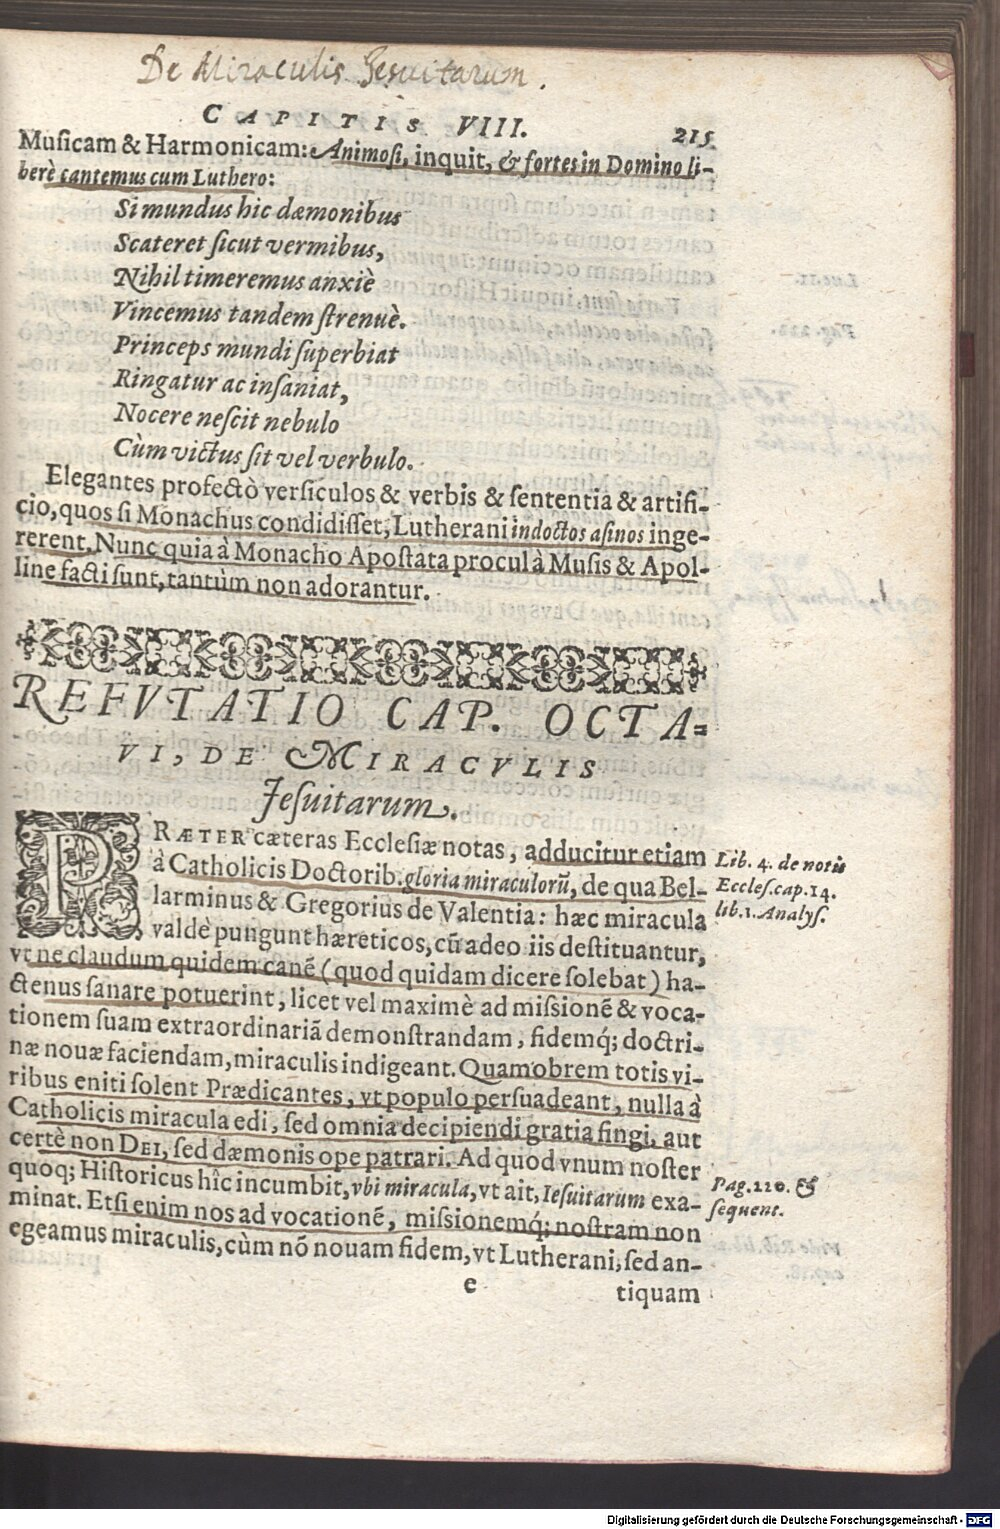 De Miraculis Jesuitarum.
CAPITIS VIII. 215
Musicam & Harmonicam: Animosi, inquit, & fortes in Domino li-
berè cantemus cum Luthero:
Si mundus hic dæmonibus
Scateret sicut vermibus,
Nihil timeremus anxiè
Vincemus tandem strenuè.
Princeps mundi superbiat
Ringatur ac insaniat,
Nocere nescit nebulo
Cùm victus sit vel verbulo.
Elegantes profectò versiculos & verbis & sententia & artifi-
cio, quos si Monachus condidisset, Lutherani indoctos asinos inge-
rerent. Nunc quia à Monacho Apostata procul à Musis & Apol-
line facti sunt, tantùm non adorantur.
REFVTATIO CAP. OCTA-
VI, DE MIRACVLIS
Jesuitarum.
PRÆTER cæteras Ecclesiæ notas, adducitur etiam
à Catholicis Doctorib. gloria miraculorũ, de qua Bel-
larminus & Gregorius de Valentia: hæc miracula
valdè pungunt hæreticos, cũ adeo iis destituantur,
vt ne claudum quidem canẽ (quod quidam dicere solebat) ha-
ctenus sanare potuerint, licet vel maximè ad missionẽ & voca-
tionem suam extraordinariã demonstrandam, fidemq́; doctri-
næ nouæ faciendam, miraculis indigeant. Quamobrem totis vi-
ribus eniti solent Prædicantes, vt populo persuadeant, nulla à
Catholicis miracula edi, sed omnia decipiendi gratia fingi, aut
certè non DEI, sed dæmonis ope patrari. Ad quod vnum noster
quoq; Historicus hîc incumbit, vbi miracula, vt ait, Iesuitarum exa-
minat. Etsi enim nos ad vocationẽ, missionemq́; nostram non
egeamus miraculis, cùm nõ nouam fidem, vt Lutherani, sed an-
e tiquam
Lib. 4. de notis
Eccles. cap. 14.
lib. 1. Analys.
Pag. 220. &
sequent.
Digitalisierung gefördert durch die Deutsche Forschungsgemeinschaft - DFG